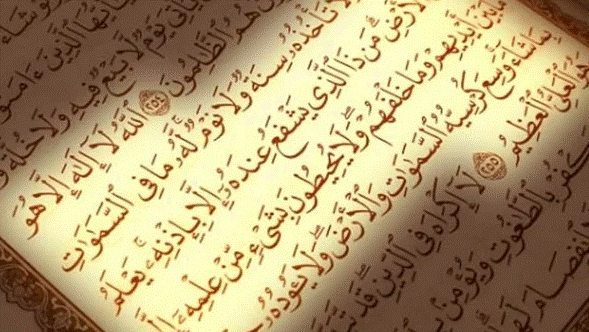 يَٰٓأَيُّهَا ٱلَّذِينَ ءَامَنُوٓا۟
يَأْتِىَ يَوْمٌ لَّا بَيْعٌ فِيهِ وَلَا خُلَّةٌ
هُمُ ٱلظَّٰلِمُونَ ٢٥٤ ٱللَّهُ لَآ إِلَٰهَ إِلَّا هُوَ
لَا تَأْخُذُهُۥ سِنَةٌ وَلَا نَوْمٌ لَّهُۥ مَا فِى ٱلسَّمَٰوَٰتِ
ٱلْأَرْضِ مَن ذَا ٱلَّذِى يَشْفَعُ عِندَهُۥٓ إِلَّا بِإِذْنِهِۦ يَعْلَمُ
مَا بَيْنَ أَيْدِيهِمْ وَمَا خَلْفَهُمْ وَلَا يُحِيطُونَ بِشَىْءٍ مِّنْ عِلْمِهِۦٓ إِلَّا
بِمَا شَآءَ وَسِعَ كُرْسِيُّهُ ٱلسَّمَٰوَٰتِ وَٱلْأَرْضَ وَلَا يَـُٔودُهُۥ
هُوَ ٱلْعَلِىُّ ٱلْعَظِيمُ ٢٥٥ لَآ إِكْرَاهَ فِى ٱلدِّينِ قَد تَّبَيَّنَ
يَكْفُرْ بِٱلطَّٰغُوتِ وَيُؤْمِنۢ
ٱنفِصَامَ لَهَا